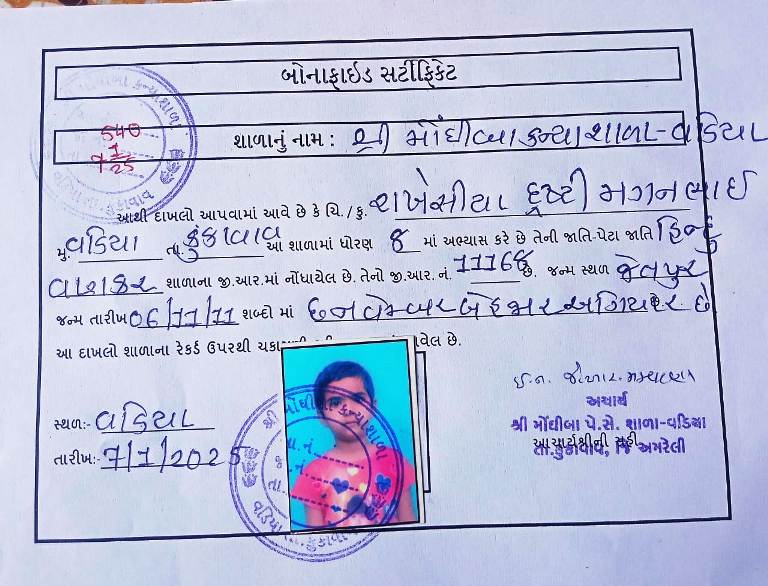 બોનાફાઇડ સર્ટીફિકેટ
540
7/1/25
શાળાનું નામ : શ્રી મોંઘીબા કન્યાશાળા-વડિયા
આથી દાખલો આપવામાં આવે છે કે ચિ./કુ. રાખેસીયા દ્રષ્ટી મગનભાઈ
મુ. વડિયા તા. કુંકાવાવ આ શાળામાં ધોરણ ૮ માં અભ્યાસ કરે છે તેની જાતિ-પેટા જાતિ હિન્દુ
વણકર શાળાના જી.આર.માં નોંધાયેલ છે. તેનો જી.આર. નં. 11168 છે. જન્મ સ્થળ જેતપુર
જન્મ તારીખ 06/11/11 શબ્દો માં છ નવેમ્બર બે હજાર અગિયાર છે
આ દાખલો શાળાના રેકર્ડ ઉપરથી
વેલ છે.
સ્થળ:- વડિયા
તારીખ:- 7/1/2025
આચાર્ય
શ્રી મોંઘીબા પે.સે. શાળા-વડિયા
આચાર્યશ્રીની સહી
તા.કુંકાવાવ, જિ અમરેલી